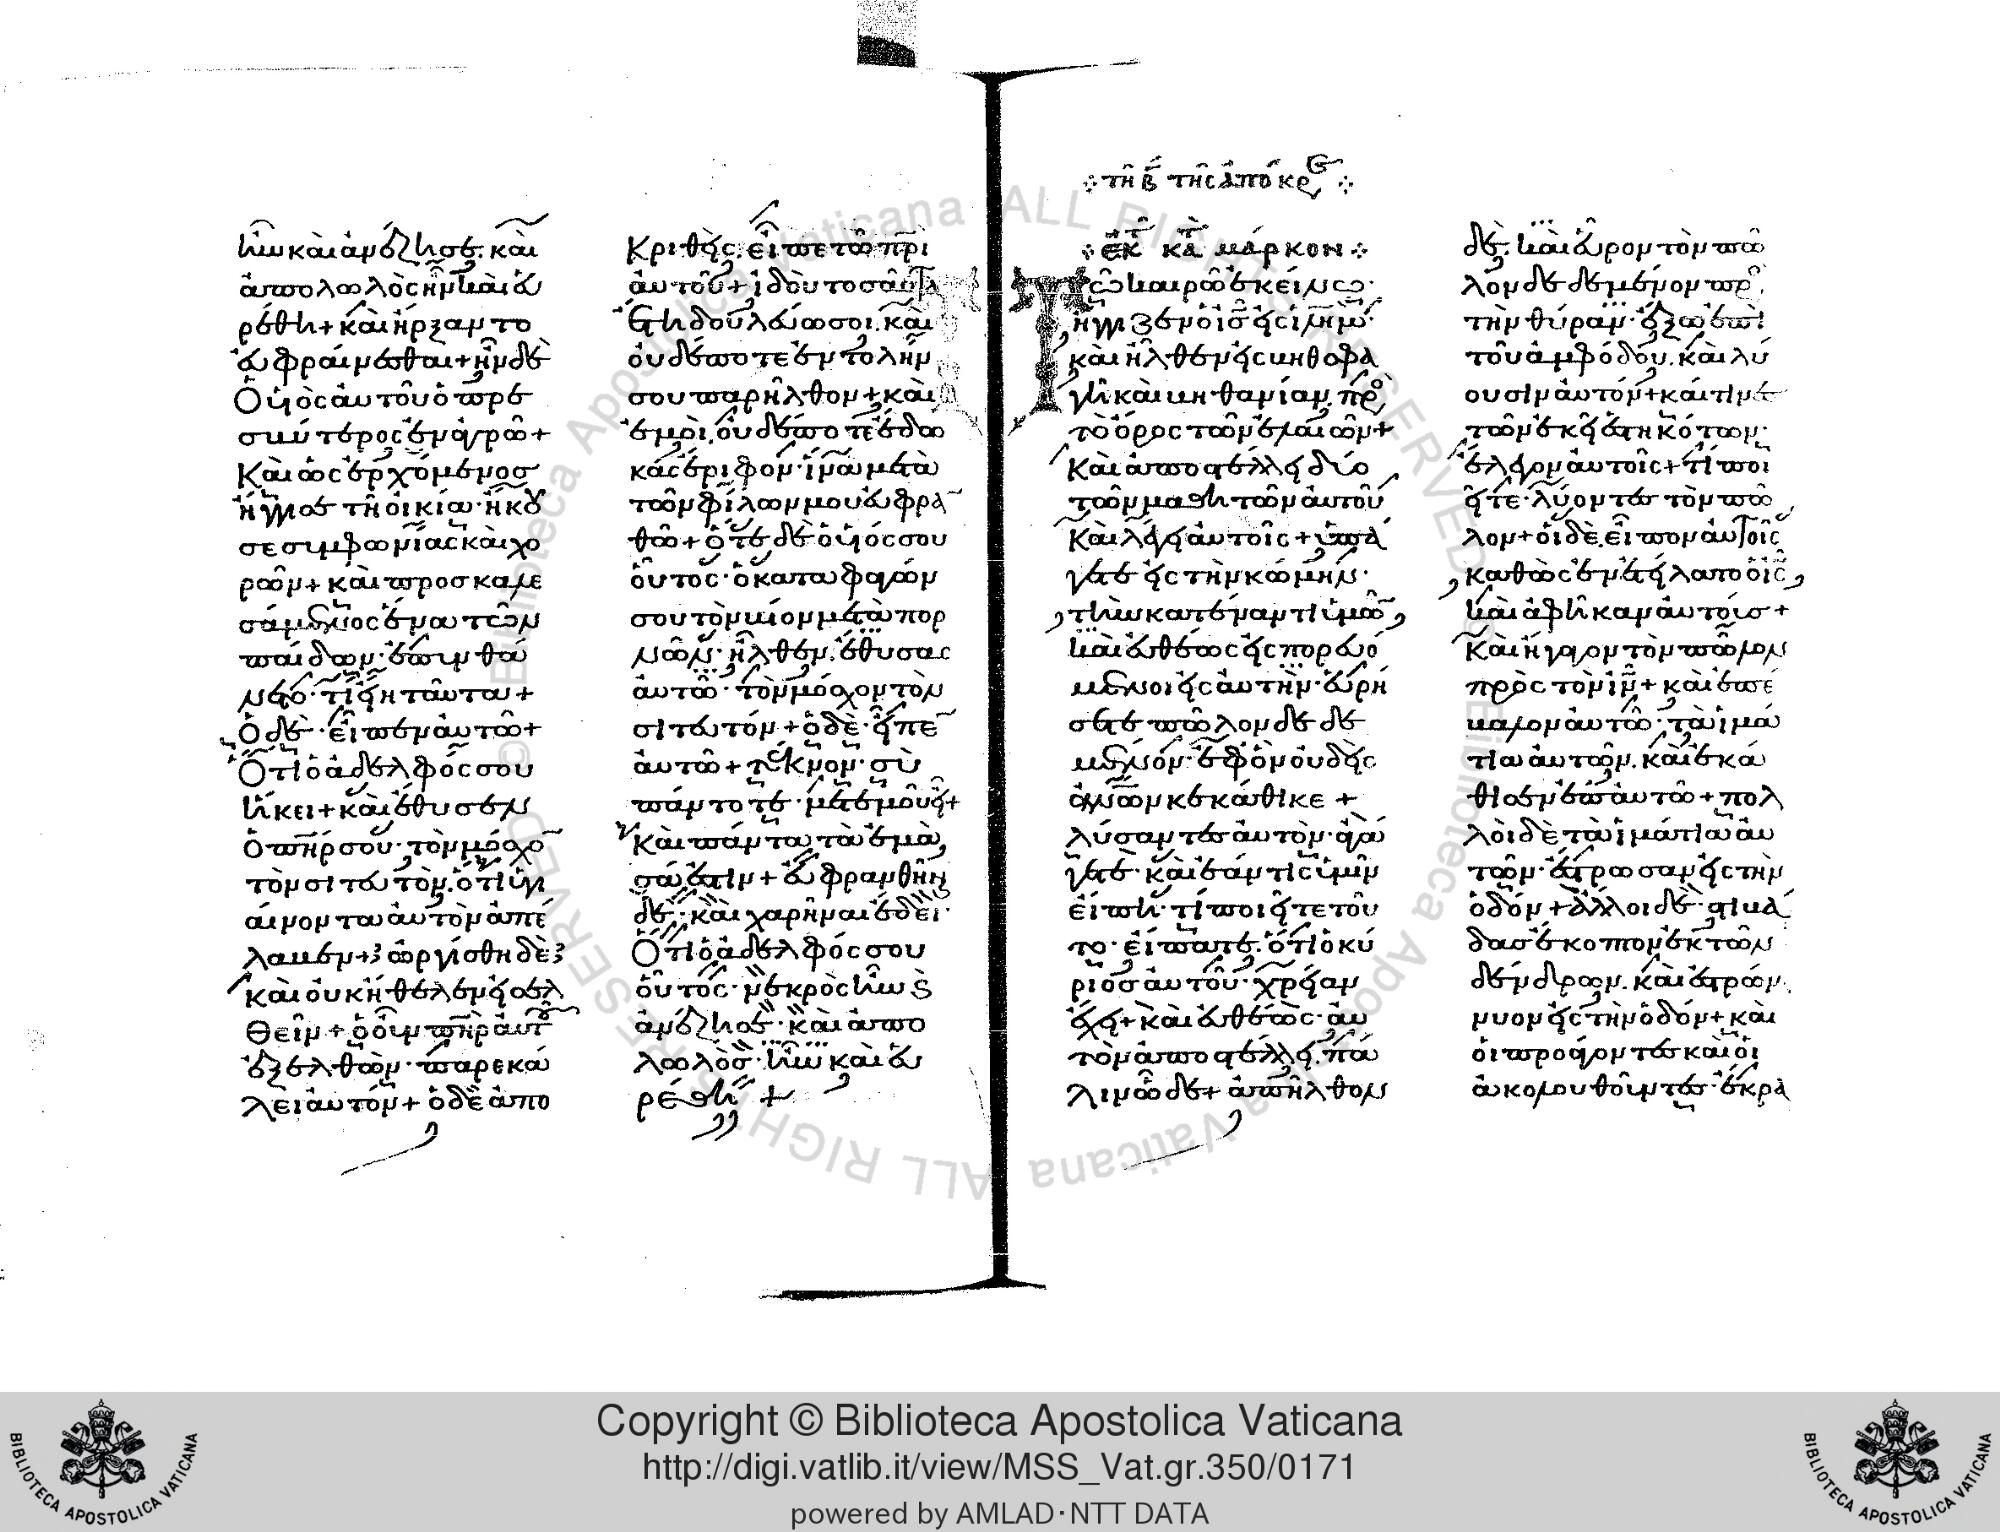 ἦν καὶ ἀνέζησε. καὶ
ἀπολωλὸς ἦν καὶ εὑ
ρέθη + καὶ ἤρξαντο
εὐφραίνεσθαι + ἦν δὲ
Ὁ υἱὸς αὐτοῦ ὁ πρεσ
βύτερος ἐν ἀγρῶ +
Καὶ ὡς ἐρχόμενος
ἤγγισε τῆ οἰκία· ἤκου
σε συμφωνίας καὶ χο
ρῶν + καὶ προσκαλε
σάμενος ἕνα τῶν
παίδων· ἐπυνθά
νετο· τί εἴη ταῦτα +
Ὁ δὲ· εἶπεν αὐτῶ +
Ὅτι ὁ ἀδελφός σου
ἥκει + καὶ ἔθυσεν
ὁ πηρ σου· τὸν μόσχο
τὸν σιτευτὸν. ὅτι ὑγι
αίνοντα αὐτὸν ἀπέ
λαβεν + ὠργίσθη δὲ
καὶ οὐκ ἤθελεν εἰσελ
θεῖν + ὁ οὖν πηρ αὐτοῦ
ἐξελθὼν· παρεκά
λει αὐτόν + ὁ δὲ ἀπο
κριθεὶς. εἶπε τῶ πρι
αὐτοῦ + ἰδοὺ τοσαῦτα
ἔτη δουλεύω σοι. καὶ
οὐδέποτε ἐντολήν
σου παρῆλθον + καὶ
ἐμοὶ. οὐδέποτε ἔδω
κας ἔριφον· ἵνα μετὰ
τῶν φίλων μου εὐφραν
θῶ + ὅτε δὲ ὁ υἱός σου
οὗτος· ὁ καταφαγών
σου τὸν βίον μετὰ πορ
νῶν· ἦλθεν. ἔθυσας
αὐτῶ· τὸν μόσχον τὸν
σιτευτόν + ὁ δὲ· εἶπεν
αὐτῶ + τέκνον· σὺ
πάντοτε· μετ' ἐμοῦ εἶ +
Καὶ πάντα τὰ ἐμὰ,
σά ἐστιν + εὐφρανθῆναι
δὲ· καὶ χαρῆναι ἔδει·
Ὅτι ὁ ἀδελφός σου
οὗτος· νεκρὸς ἦν καὶ
ἀνέζησε· καὶ ἀπο
λωλὸς· ἦν καὶ εὑ
ρέθη +
τῆ β τῆς ἀπόκρεω
ἐκ κατὰ μάρκον
Τῶ καιρῶ ἐκείνω·
ἤγγιζεν ὁ ἰς εἰς ἱλημ·
καὶ ἦλθεν εἰς βηθσφα
γὴ καὶ βηθανίαν. πρὸς
τὸ ὄρος τῶν ἐλαιῶν +
Καὶ ἀποστέλλει δύο
τῶν μαθητῶν αὐτοῦ
Καὶ λέγει αὐτοῖς + ὑπά
γετε εἰς τὴν κώμην·
τὴν κατέναντι ὑμῶν,
καὶ εὐθέως εἰσπορευό
μενοι εἰς αὐτὴν· εὑρή
σετε πῶλον δεδε
μένον· ἐφ' ὃν οὐδεὶς
ἀνων κεκάθικε +
λύσαντες αὐτὸν· ἀγά
γετε· καὶ ἐάν τις ὑμῖν
εἴπη· τί ποιεῖτε τοῦ
το· εἴπατε. ὅτι ὁ κύ
ριος αὐτοῦ· χρείαν
ἔχει + καὶ εὐθέως· αὐ
τὸν ἀποστέλλει. πά
λιν ὧδε + ἀπῆλθον
δὲ. καὶ εὗρον τὸν πῶ
λον δεδεμένον πρὸς
τὴν θύραν· ἔξω ἐπὶ
τοῦ ἀμφόδου. καὶ λύ
ουσιν αὐτόν + καί τινες
τῶν ἐκεῖ ἑστηκότων·
ἔλεγον αὐτοῖς + τί ποι
εῖτε· λύοντες τὸν πῶ
λον + οἱ δὲ. εἶπον αὐτοῖς
καθὼς ἐνετείλατο ὁ ἰς,
καὶ ἀφῆκαν αὐτούς +
Καὶ ἤγαγον τὸν πῶλον
πρὸς τὸν ἰν + καὶ ἐπέ
βαλον αὐτῶ· τὰ ἱμά
τια αὐτῶν. καὶ ἐκά
θισεν ἐπ' αὐτῶ + πολ
λοὶ δὲ τὰ ἱμάτια αὐ
τῶν· ἔστρωσαν εἰς τὴν
ὁδόν + ἄλλοι δὲ· στιβά
δας ἔκοπτον ἐκ τῶν
δένδρων. καὶ ἐστρών
νυον εἰς τὴν ὁδόν + καὶ
οἱ προάγοντες καὶ οἱ
ἀκολουθοῦντες· ἔκρα
Copyright © Biblioteca Apostolica Vaticana
http://digi.vatlib.it/view/MSS_Vat.gr.350/0171
powered by AMLAD·NTT DATA
BIBLIOTECA APOSTOLICA VATICANA
BIBLIOTECA APOSTOLICA VATICANA